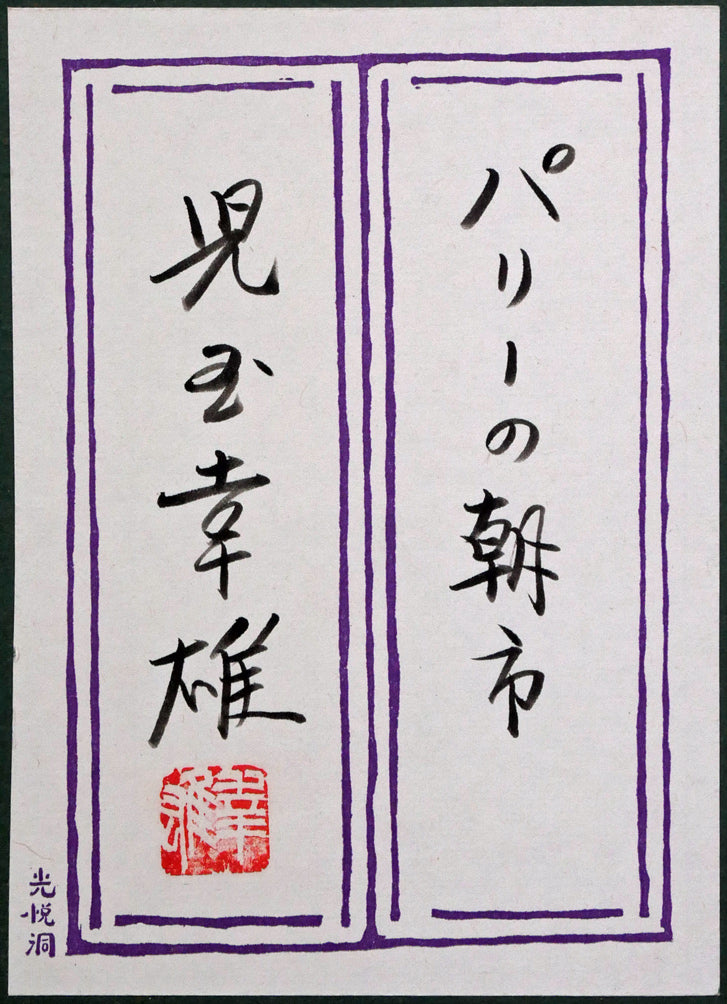 パリーの朝市
児玉幸雄
幸雄
光悦洞